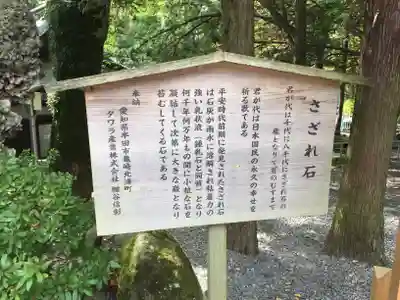 さざれ石
君が代は千代に八千代にさざれ石の
巌となりて苔のむすまで
君が代は日本国民の永久の幸せを
祈る歌である
平安時代前期に発見されたさざれ石
は石灰が雨水に溶解され粘着力の
強い乳状液(鍾乳石と同質)となり
何千年何万年もの間に小粒な石を
凝結して次第に大きな巌となり
苔むしてくる石である
奉納
愛知県半田市亀崎北浦町
タワラ産業株式会社